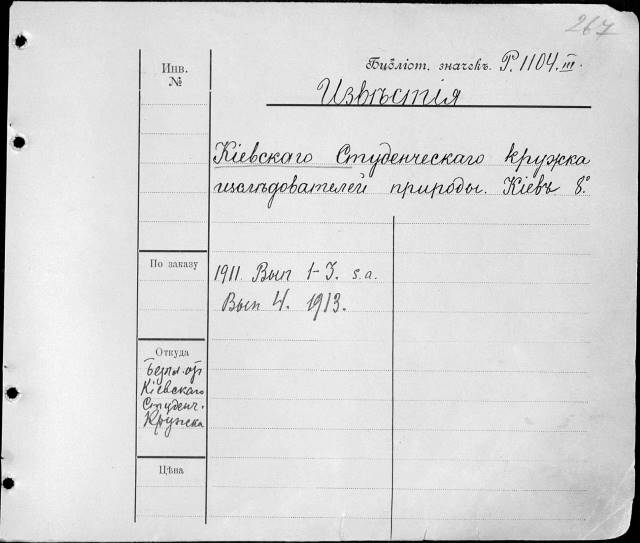 267
Инв.
№
Библіот. значекъ. Р. 1104. III.
Извѣстія
Кіевскаго Студенческаго кружка
изслѣдователей природы. Кіевъ 8.º
По заказу
1911. Вып 1-3. s.a.
Вып 4. 1913.
Откуда
Безпл. от
Кіевскаго
Студенч.
Кружка
Цѣна